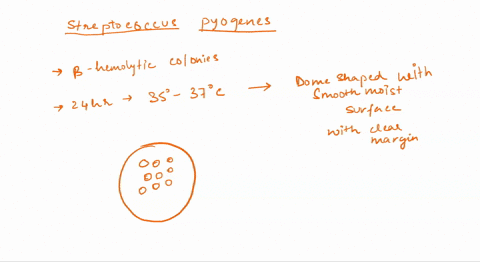 Streptococcus pyogenes
→ β-hemolytic colonies
→ 24hr → 35°-37°c → Dome shaped with
smooth moist
surface
with clear
margin